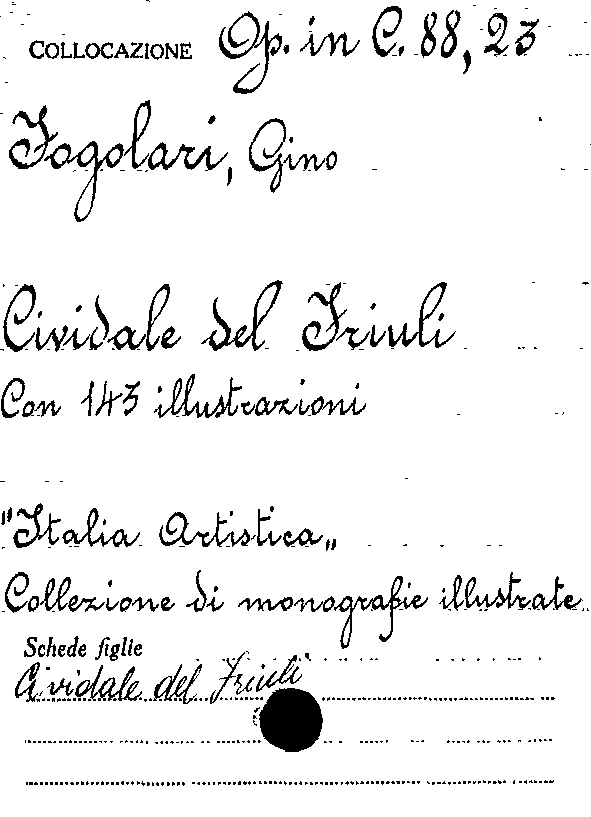 COLLOCAZIONE Op. in C. 88, 23
Fogolari, Gino
Cividale del Friuli
Con 143 illustrazioni
"Italia Artistica„
Collezione di monografie illustrate
Schede figlie
Cividale del Friuli